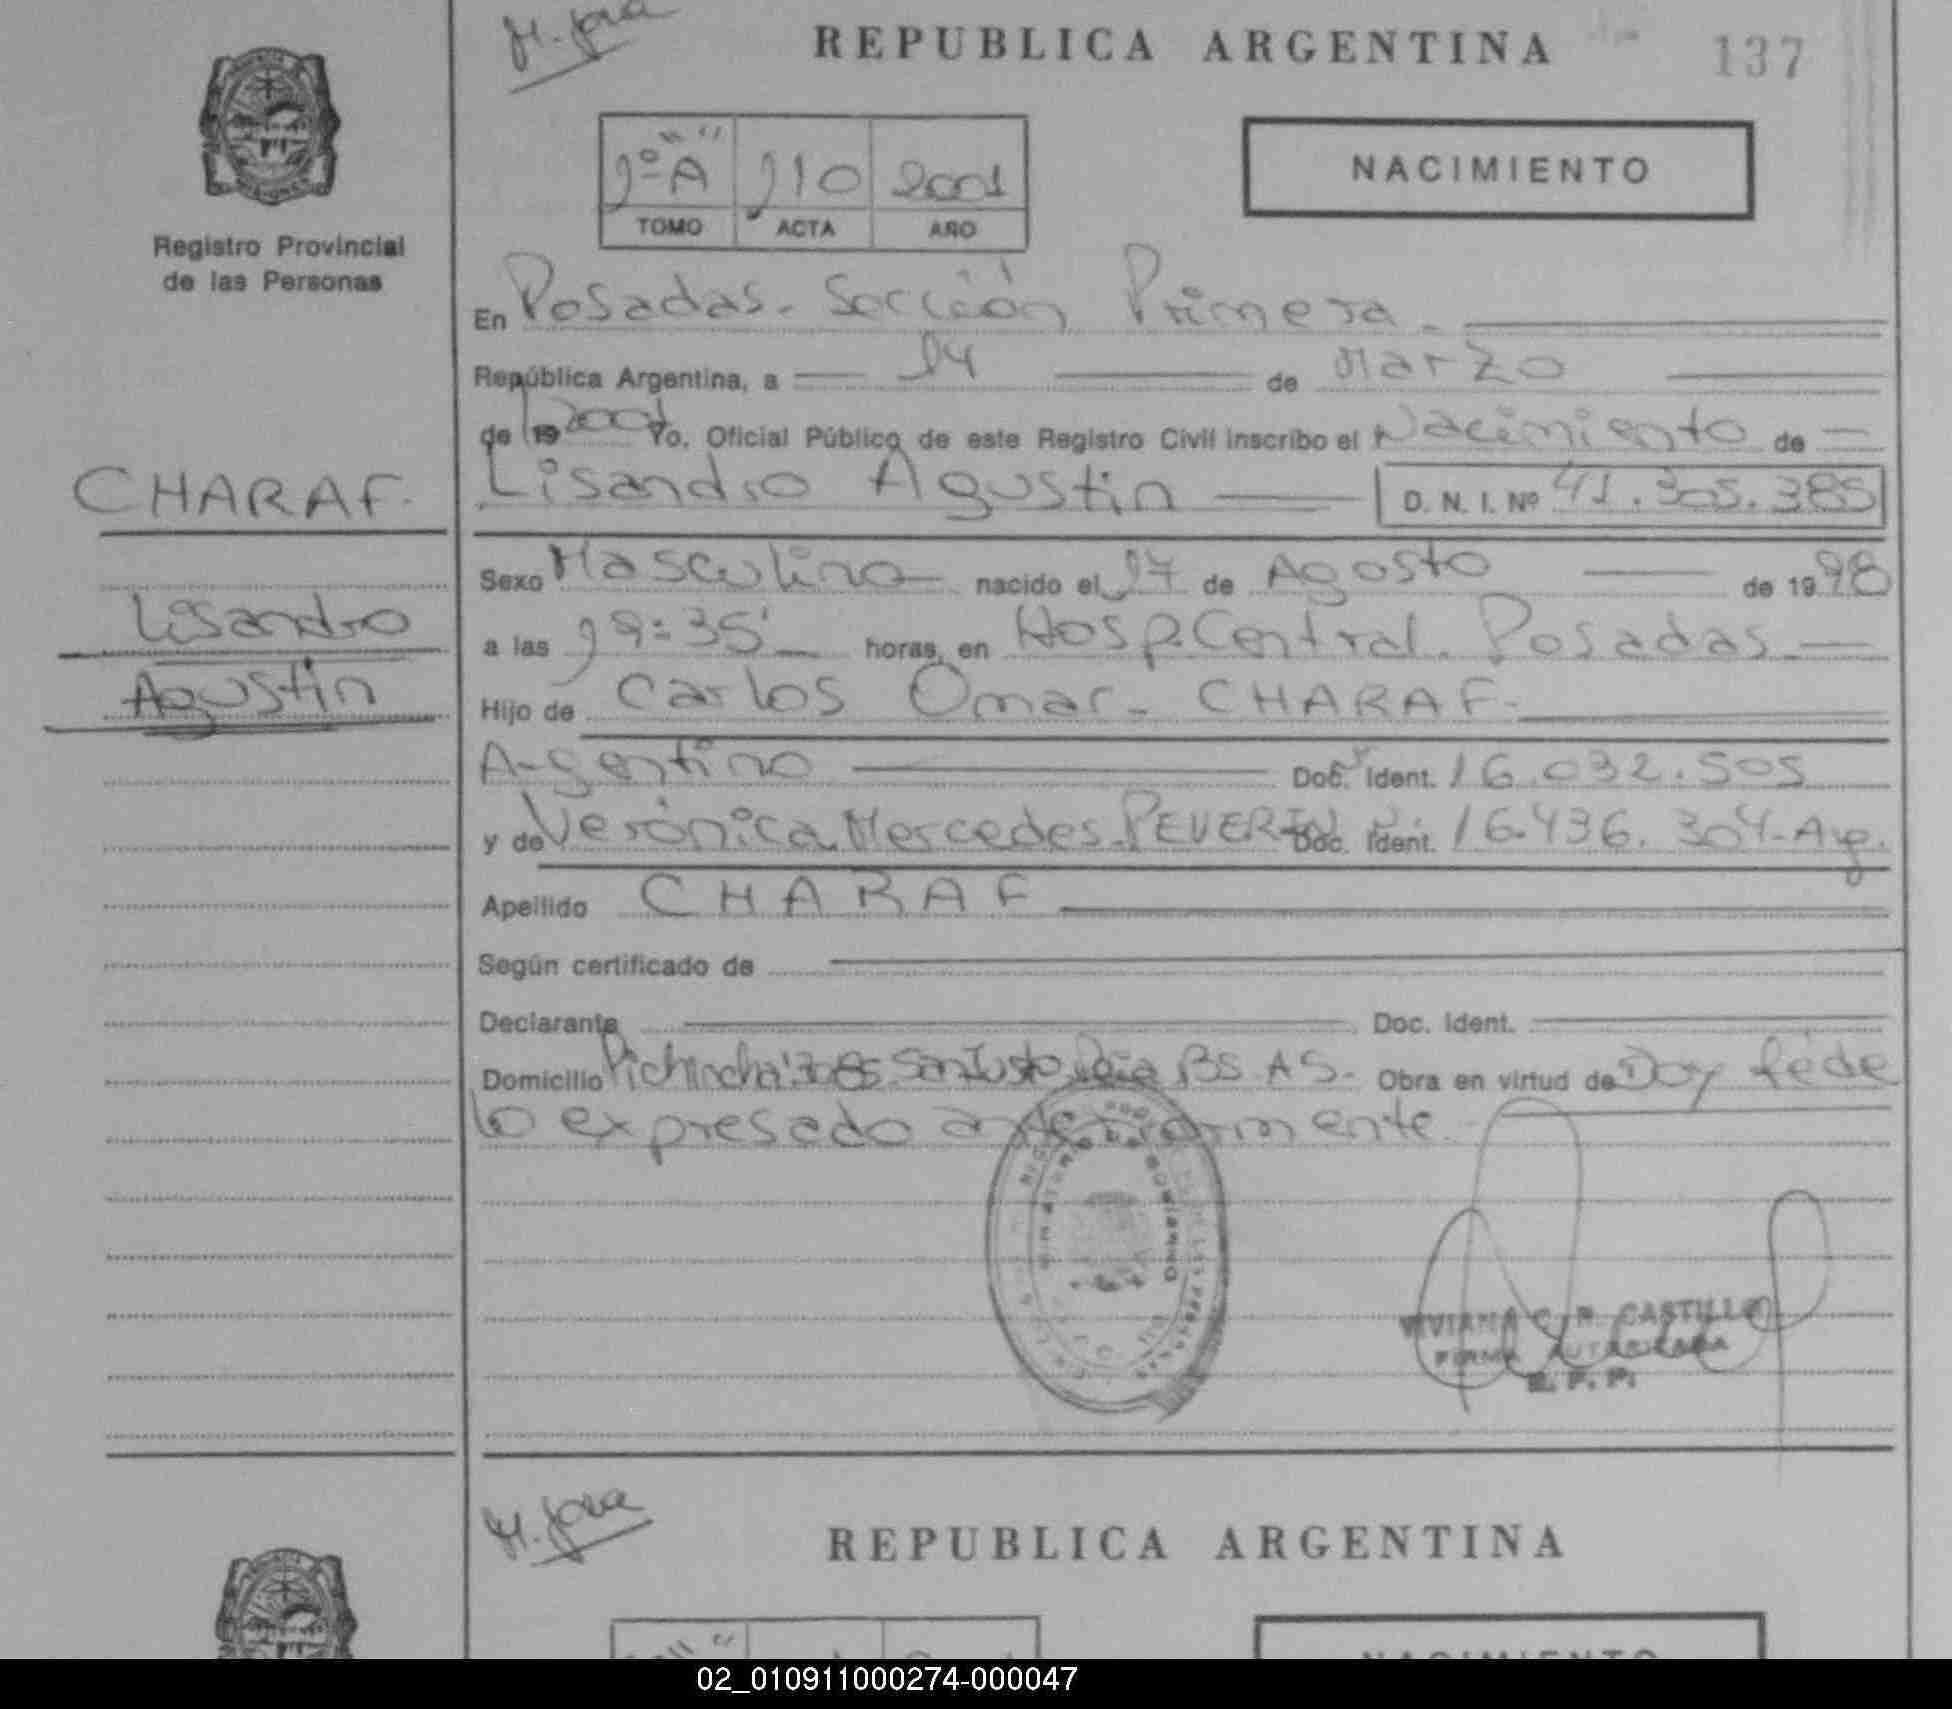 M. Jora
REPUBLICA ARGENTINA
137
1º "A" 110 2001
TOMO ACTA AÑO
NACIMIENTO
Registro Provincial
de las Personas
En Posadas. Sección Primera.
República Argentina, a 14 de Marzo
de 19 2001 Yo, Oficial Público de este Registro Civil inscribo el Nacimiento de
CHARAF.
Lisandro Agustin D. N. I. Nº 41.305.385
Sexo Masculino nacido el 17 de Agosto de 1998
Lisandro
a las 19:35' horas, en Hosp. Central. Posadas
Agustin
Hijo de Carlos Omar. CHARAF.
Argentino Doc. Ident. 16.032.505
y de Verónica Mercedes. PEVERIN Doc. Ident. 16.436.304-Arg.
Apellido CHARAF
Según certificado de
Declarante Doc. Ident.
Domicilio Pichincha 3085 San Justo Pcia BS AS. Obra en virtud de Doy fé de
lo expresado anteriormente.
VIVIANA C. R. CASTILLO
FIRMA AUTORIZADA
R. P. P.
M. Jora
REPUBLICA ARGENTINA
NACIMIENTO
02_010911000274-000047